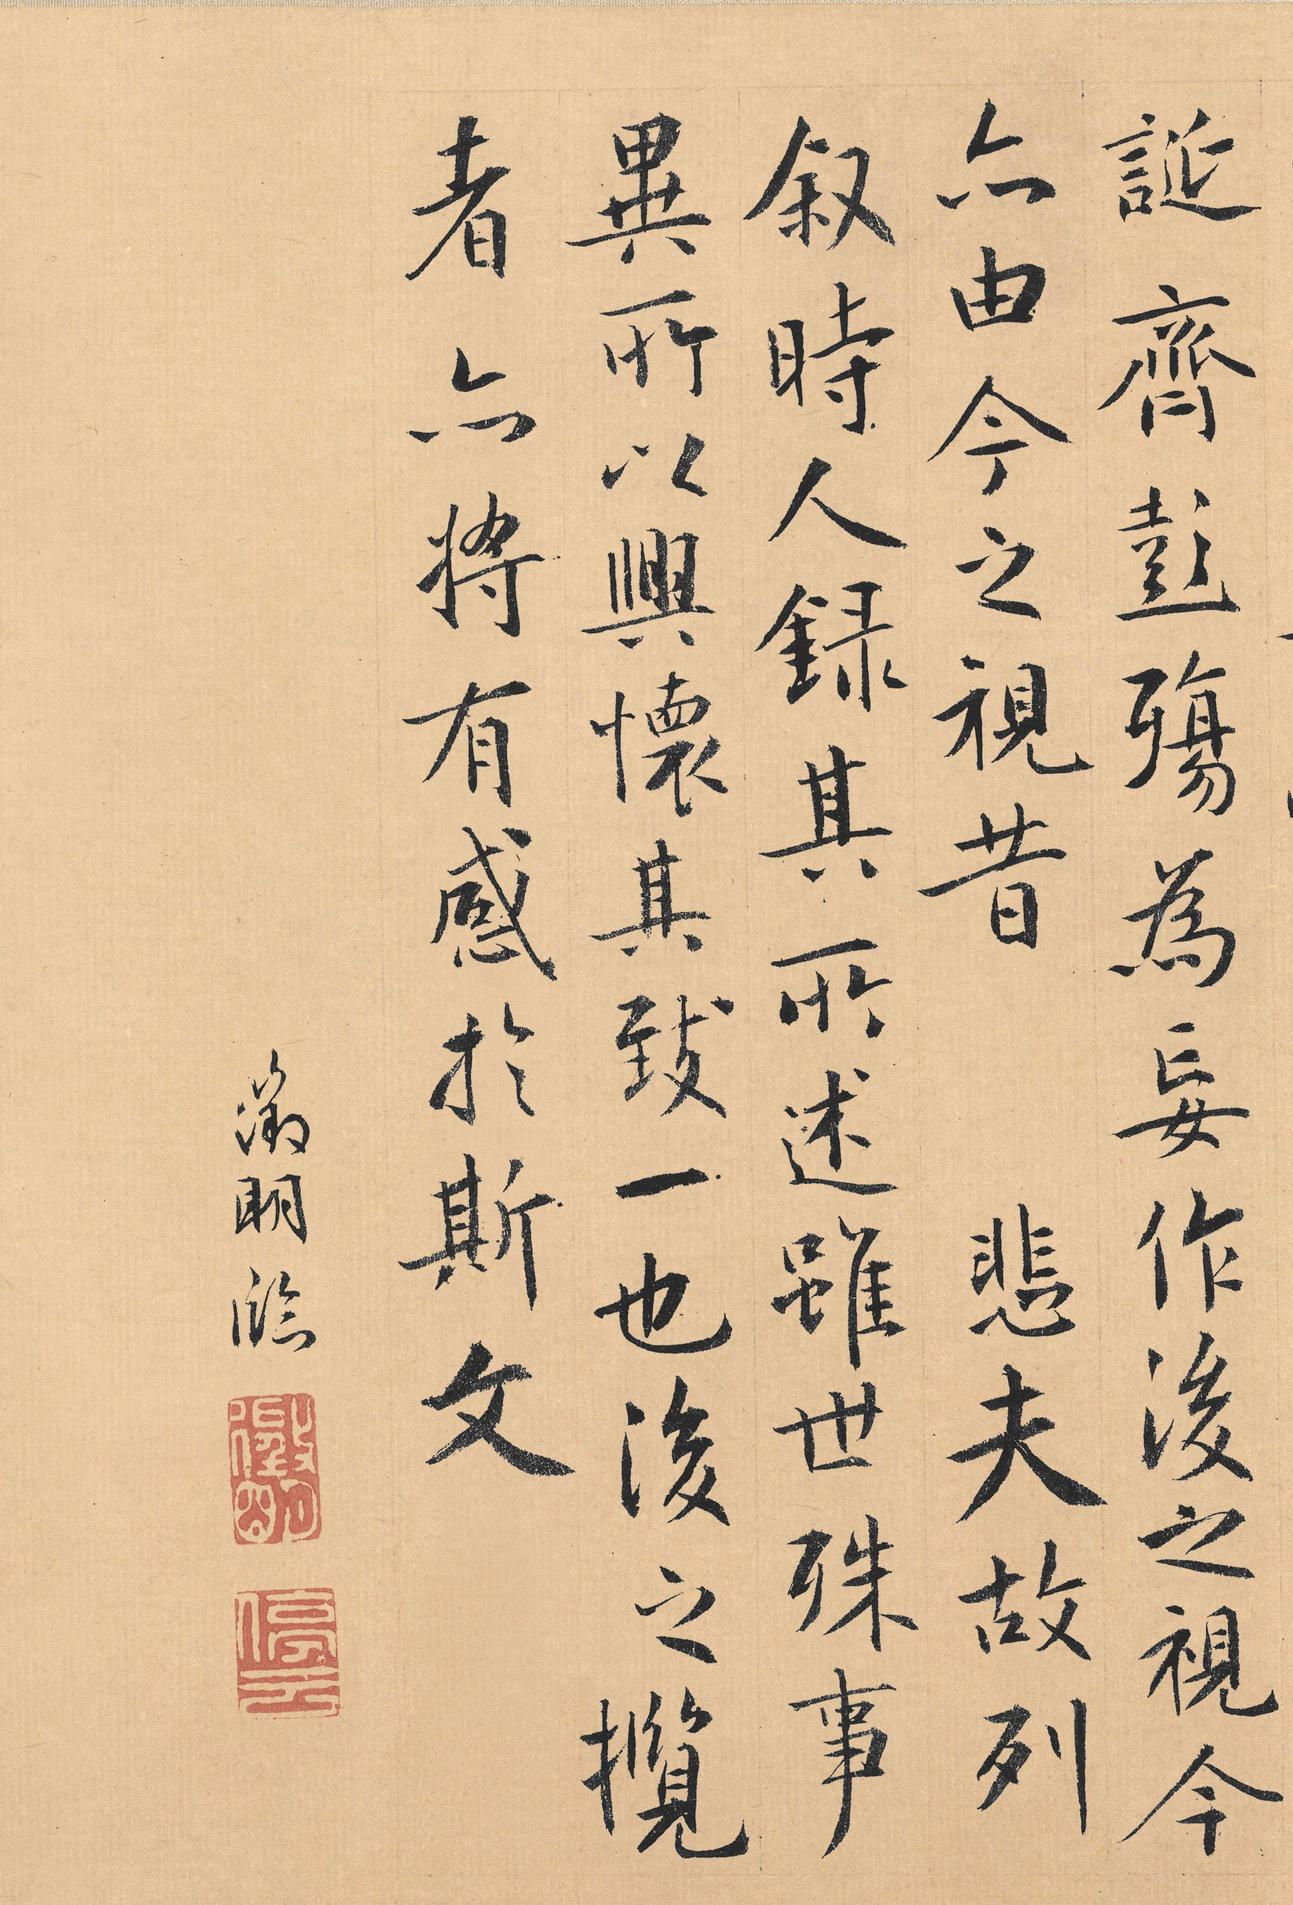 誕齊彭殤為妄作後之視今
亦由今之視昔 悲夫故列
叙時人録其所述雖世殊事
異所以興懷其致一也後之攬
者亦将有感於斯文
徵明臨
徵明
停雲